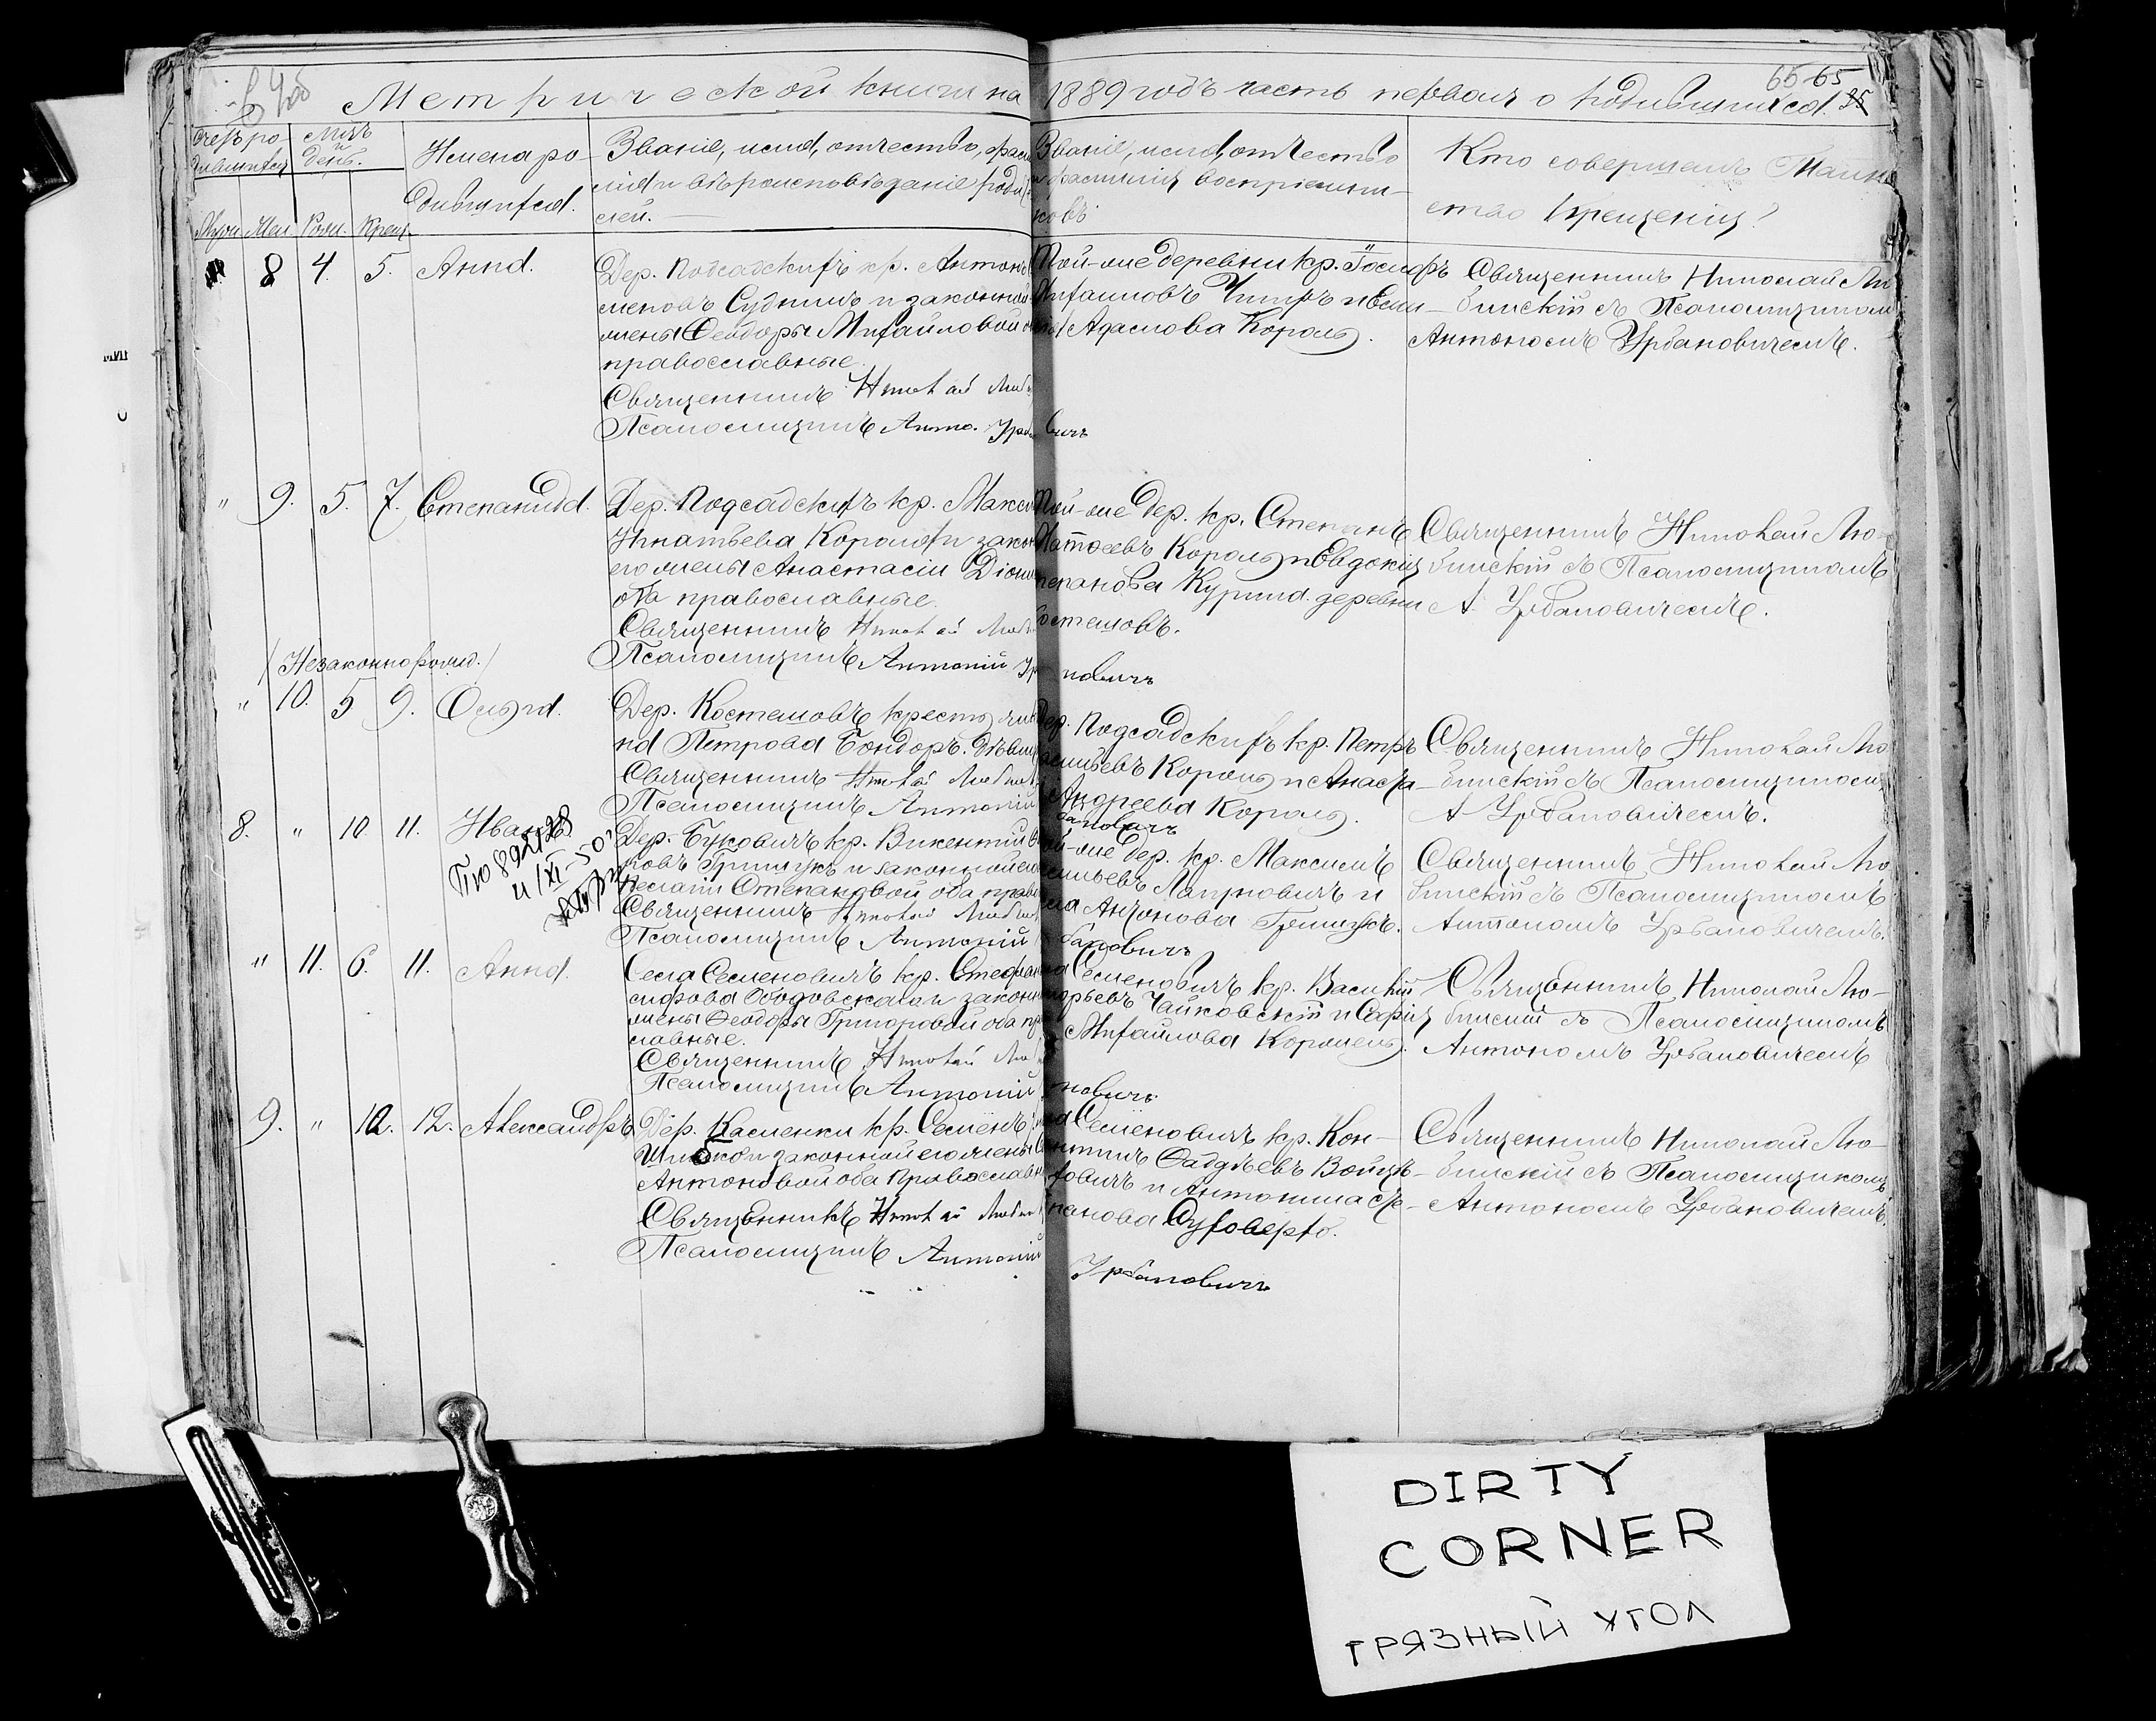 Метрической книги на 1889 годъ часть первая о родившихся.
65 65
35
Счетъ ро-
дившихся
Мѣс.
и
День.
Имена ро-
дившихся.
Званіе, имя, отчество, фами
лія и вѣроисповѣданіе роди
лей.
Званіе, имя, отчество
и фамилія воспріемни-
ковъ
Кто совершалъ Таин
ство Крещенія?
Муж. Жен. Рож. Крещ.
8 4. 5. Анна.
Дер. Подсадскихъ кр. Антонъ
меновъ Судникъ и законной
жены Ѳеодоры Михайловой
православные.
Священникъ Николай Люби
Псаломщикъ Антон. Урбановичъ
Той-же деревни кр. Іосифъ
Михаиловъ Читръ и Евли
Адамова Король.
Священникъ Николай Лю
бинскій съ Псаломщикомъ
Антоніемъ Урбановичемъ.
" 9. 5. 7. Степанида.
Дер. Подсадскихъ кр. Макси
Игнатьева Король и закон
его жены Анастасіи Діони
оба православные.
Священникъ Николай Люби
Псаломщикъ Антоній Урбановичъ
Той-же дер. кр. Степанъ
Король и Евдокія
тепанова Курила деревни
Костешовъ.
Священникъ Николай Лю-
бинскій съ Псаломщикомъ
А. Урбановичемъ.
/Незаконнорожд./
" 10. 5 9. Ольга.
Дер. Костешовъ крестьянк
на Петрова Бондоръ. дѣвиц
Священникъ Николай Любин
Псаломщикъ Антоній Урбановичъ
Дер. Подсадскихъ кр. Петръ
Король и Анаста
Андреева Король.
Священникъ Николай Лю
бинскій съ Псаломщикомъ
А Урбановичемъ.
8. " 10. 11. Иванъ
Дер. Буковичъ кр. Викентій
ковъ Гришукъ и законной его
Пелагіи Степановой оба право
Священникъ Николай Любин
Псаломщикъ Антоній Урбановичъ
той-же дер. кр. Максимъ
и
на Антонова Гришукъ.
Священникъ Николай Лю
бинскій съ Псаломщикомъ
Антоніемъ Урбановичемъ.
" 11. 6. 11. Анна.
Села Семеновичъ кр. Стефан
сифова Ободовскаго и законн
жены Ѳеодоры Григоровой оба пра
славные.
Священникъ Николай Лю
Псаломщикъ Антоній Урбановичъ
ла Семеновичъ кр. Василій
Чайковскій и Софія
Михайлова Королевъ.
Священникъ Николай Лю-
бинскій съ Псаломщикомъ
Антоніемъ Урбановичемъ
9. " 12. 12. Александръ
Дер. Каменки кр. Семенъ
Шибко и законной его жены
Антоновой оба Православн
Священникъ Николай Любин
Псаломщикъ Антоній Урбановичъ
ла Семеновичъ кр. Кон-
Ѳаддѣевъ Войце-
ховичъ и Антонина Сте-
панова Суховерхо.
Священникъ Николай Лю-
бинскій съ Псаломщикомъ
Антоніемъ Урбановичемъ.
DIRTY
CORNER
ГРЯЗНЫЙ УГОЛ